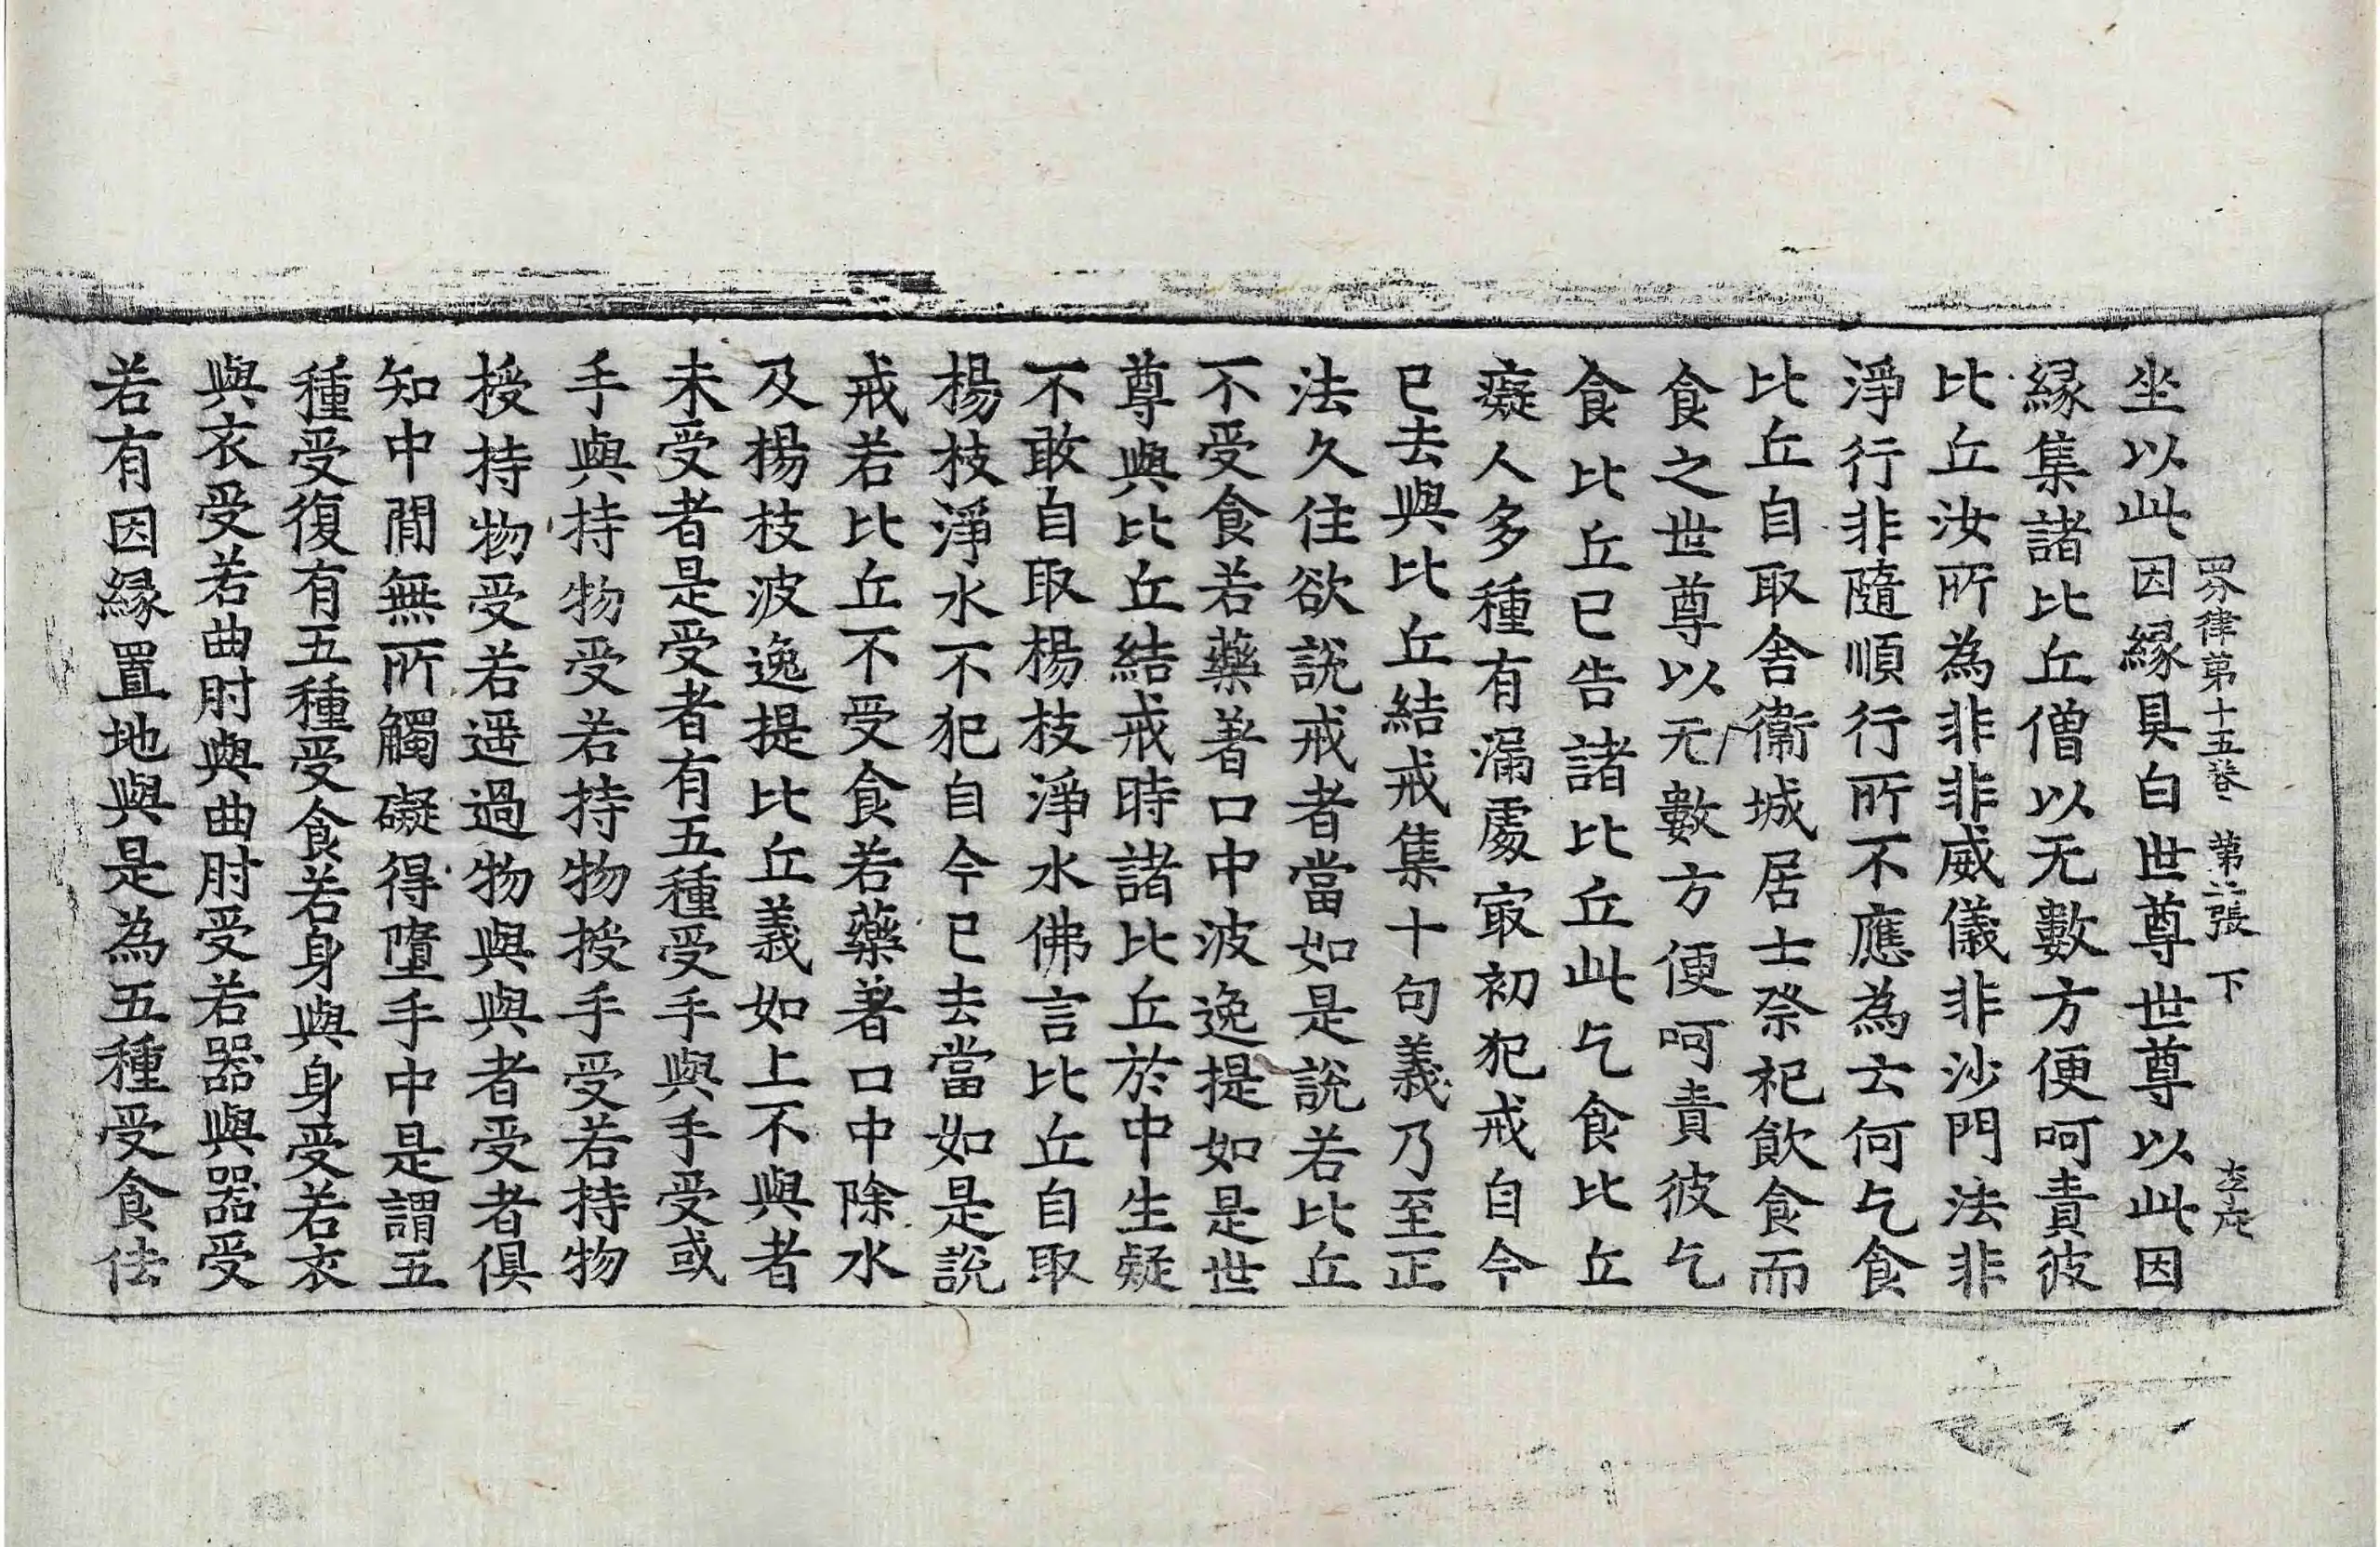 四分律第十五卷 第二張 下
坐以此因縁具白世尊世尊以此因
縁集諸比丘僧以无數方便呵責彼
比丘汝所為非非威儀非沙門法非
淨行非隨順行所不應為云何乞食
比丘自取舍衞城居士祭祀飲食而
食之世尊以无數方便呵責彼乞
食比丘已告諸比丘此乞食比丘
癡人多種有漏處㝡初犯戒自今
已去與比丘結戒集十句義乃至正
法久住欲說戒者當如是說若比丘
不受食若藥著口中波逸提如是世
尊與比丘結戒時諸比丘於中生疑
不敢自取楊枝淨水佛言比丘自取
楊枝淨水不犯自今已去當如是說
戒若比丘不受食若藥著口中除水
及楊枝波逸提比丘義如上不與者
未受者是受者有五種受手與手受或
手與持物受若持物授手受若持物
授持物受若遥過物與與者受者俱
知中閒無所觸礙得墮手中是謂五
種受復有五種受食若身與身受若衣
與衣受若曲肘與曲肘受若器與器受
若有因縁置地與是為五種受食法